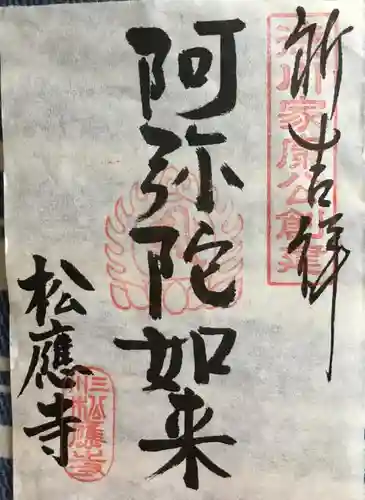 新吉祥
徳川家康公創建
阿弥陀如来
松應寺
三州松應寺